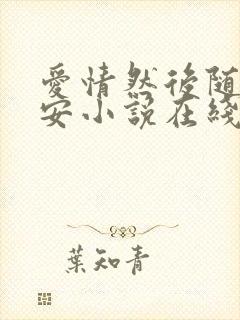 愛情然後隨
安小說在綫
葉知青